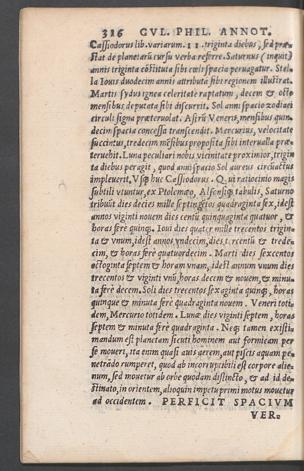 316 GVL. PHIL. ANNOT.
Cassiodorus lib. variarum. 11. triginta diebus, sed præ-
stat de planetarū cursu verba referre. Saturnus (inquit)
annis triginta cōstituta sibi cœli spacia peruagatur. Stel-
la Iouis duodecim annis attributa sibi regionem illustrat.
Martis sydus ignea celeritate raptatum, decem & octo
mensibus deputata sibi discurrit. Sol anni spacio zodiaci
circuli signa præteruolat. Astrū Veneris, mensibus quin-
decim spacia concessa transcendit. Mercurius, velocitate
succintus, tredecim mēsibus proposita sibi interualla præ-
teruehit. Luna peculiari nobis vicinitate proximior, trigin
ta diebus peragit, quod anni spacio Sol aureus circuactus
impleuerit, Vsq́ue huc Cassiodorus. Qui ratiocinio magis
subtili vtuntur, ex Ptolemæo, Alfonsiq́ue tabulis, Saturno
tribuūt dies decies mille septingētos quadraginta sex, idest
annos viginti nouem dies centū quinquaginta quatuor, &
horas ferè quinq́ue. Ioui dies quater mille trecentos trigin-
ta & vnum, idest annos vndecim, dies t. recentū & trede-
cim, & horas ferè quatuordecim. Marti dies sexcentos
octoginta septem & horam vnam, idest annum vnum dies
trecentos & viginti vnū, horas decem & nouem, & minu-
ta ferè decem. Soli dies trecentos sex aginta quinq́ue, horas
quinque & minuta ferè quadraginta nouem. Veneri toti-
dem, Mercurio totidem. Lunæ dies viginti septem, horas
septem & minuta ferè quadraginta. Neq́ue tamen existi-
mandum est planetam sicuti hominem aut formicam per
se moueri, ita enim quasi auis aerem, aut piscis aquam pe-
netrādo rumperet, quod ab incorruptibili est corpore alie-
num, sed mouetur ab orbe quodam distincto, & ad id de-
stinato, in orientem, alioquin impetu primi motus mouetur
ad occidentem. PERFICIT SPACIVM
VER-